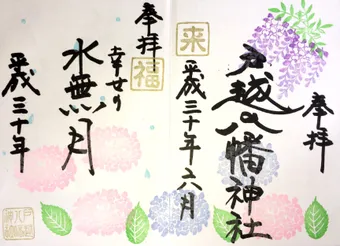 奉拝
戸越八幡神社
来
平成三十年六月
奉拝
福
幸せの
水無月
平成三十年